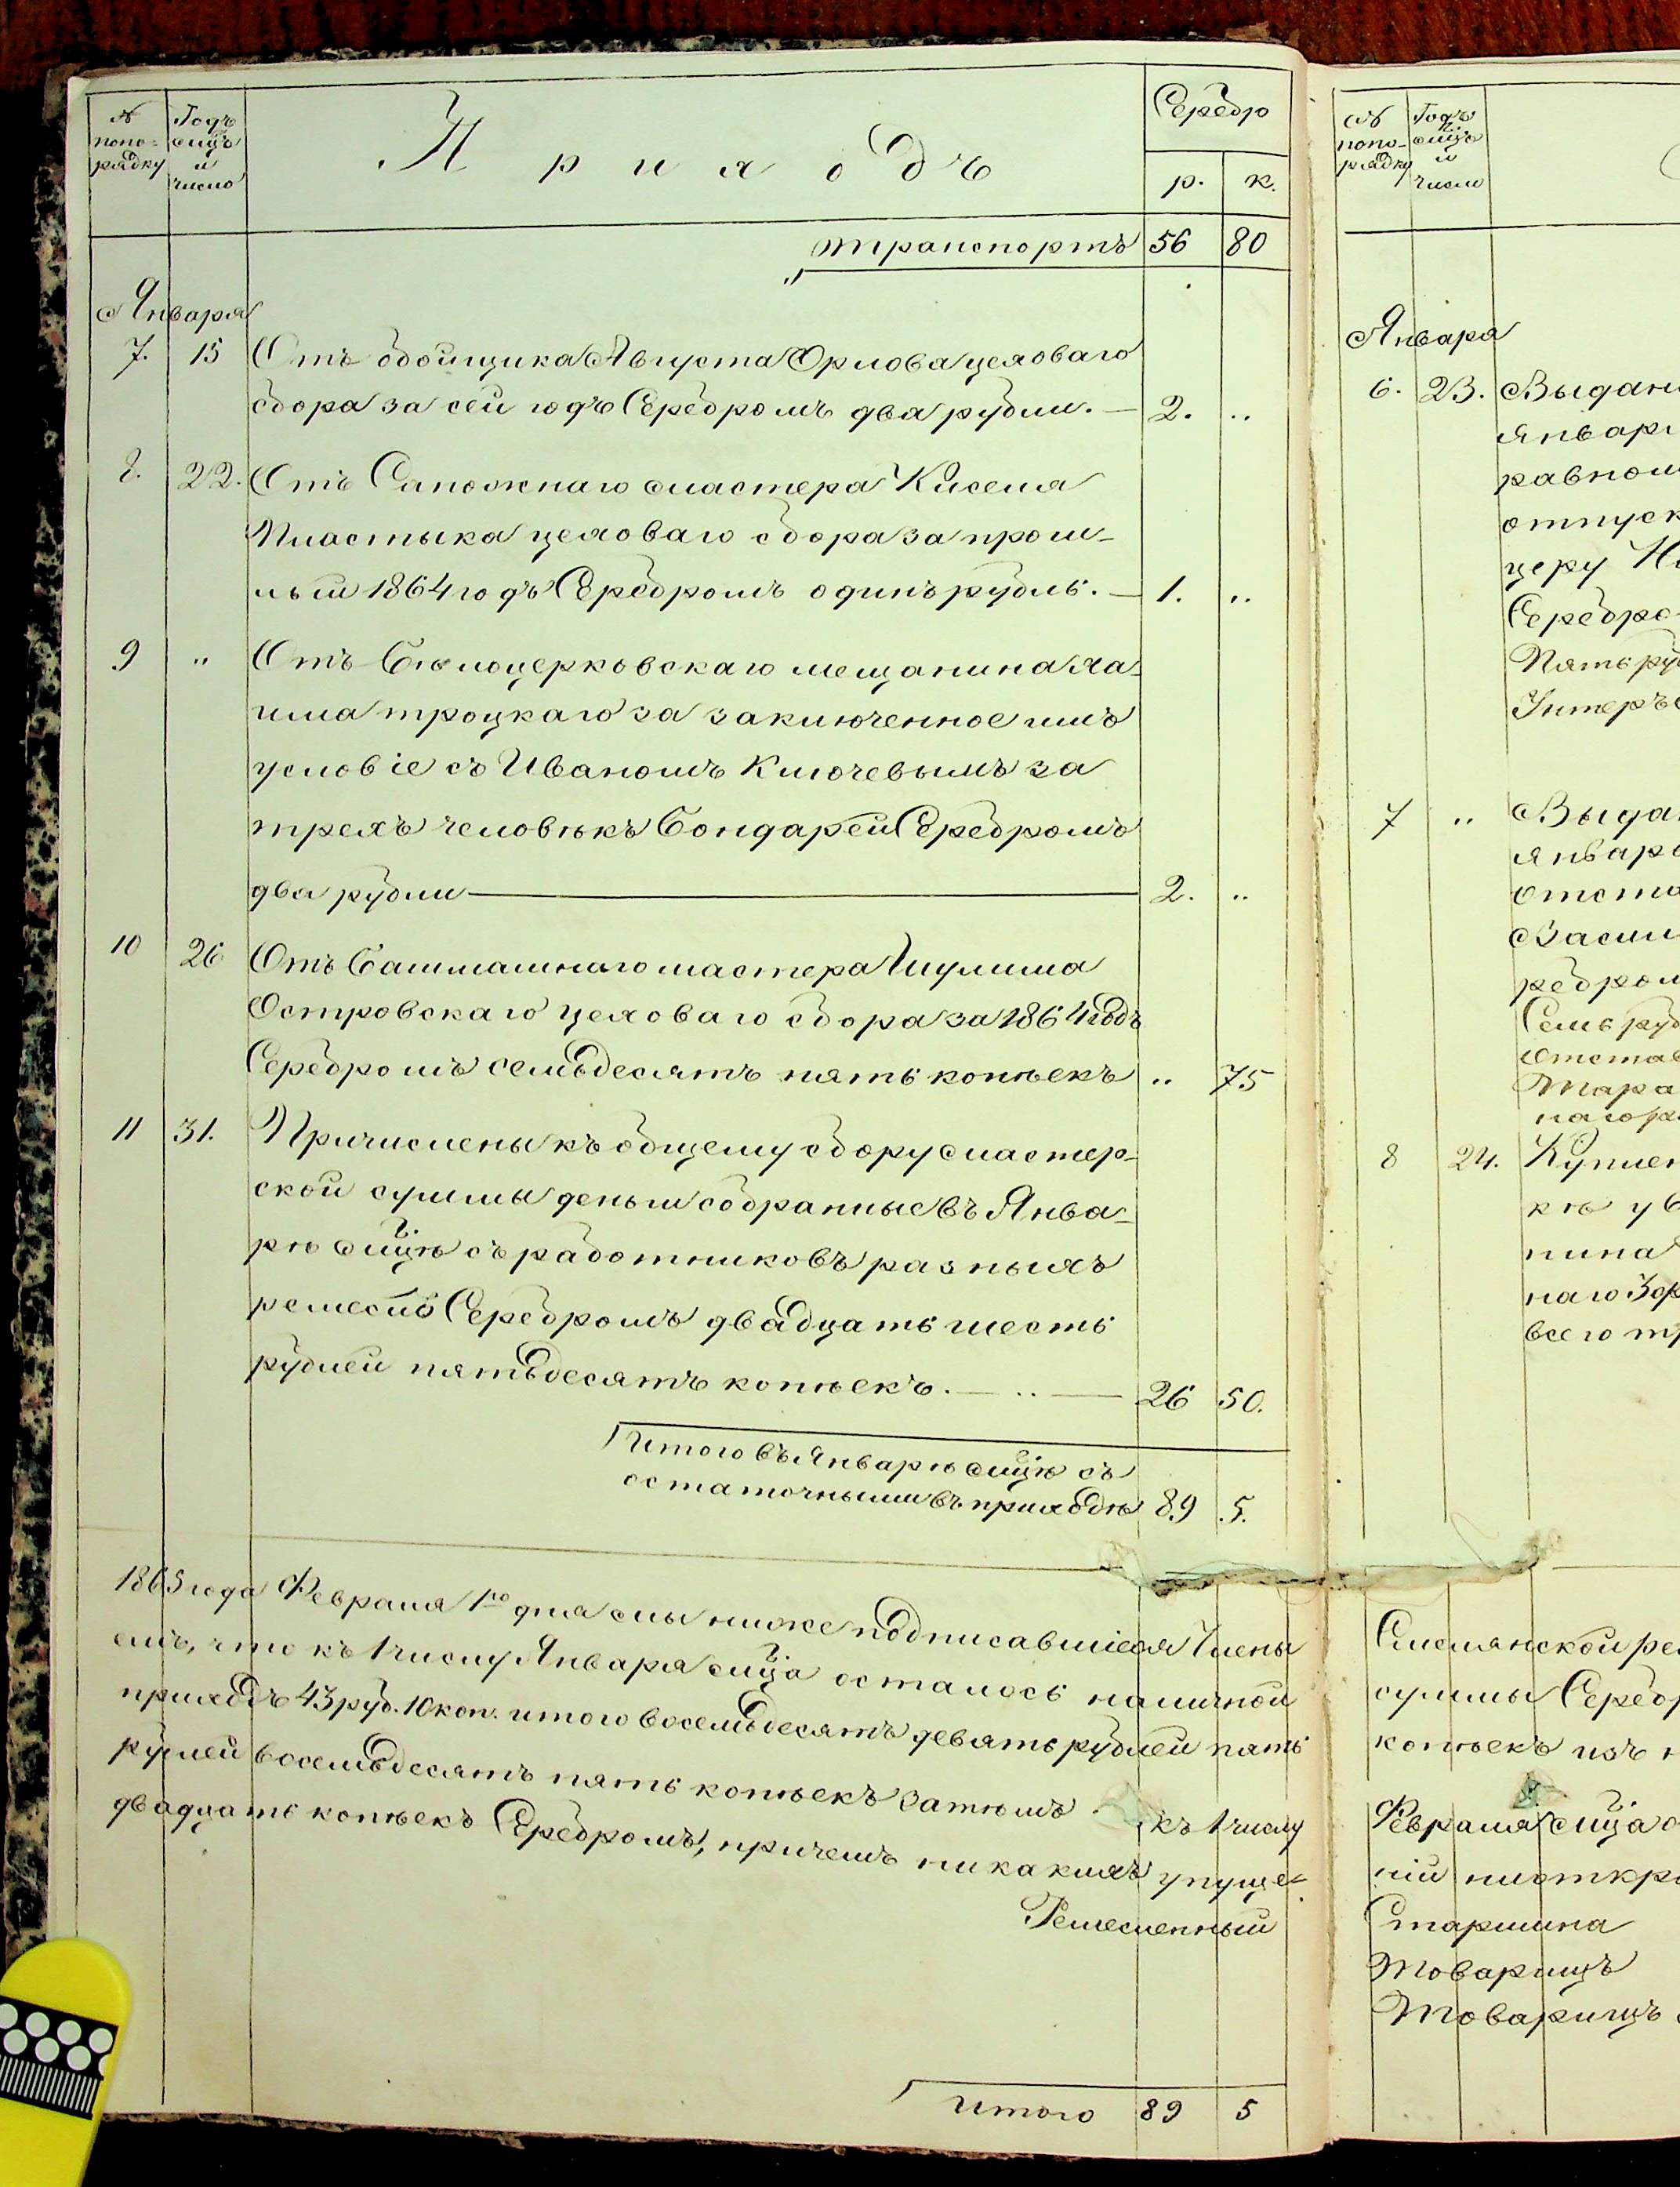 № Годъ
попо- мцъ
рядку и
число
Приходъ
Серебро
р. к.
транспортъ 56 80
Января
7. 15 Отъ обойщика Августа Орлова цеховаго
сбора за сей годъ Серебромъ два рубли. — 2. ..
8. 22. Отъ Сапожнаго мастера Киселя
Пластыка цеховаго сбора за прош-
лый 1864 годъ Серебромъ одинъ рубль. — 1. ..
9 .. Отъ Бѣлоцерковскаго мещанина Ха-
има троцкаго за заключенное имъ
условіе съ Иваномъ Ключевымъ за
трехъ человѣкъ Бондарей Серебромъ
два рубли — 2. ..
10 26 Отъ Башмашнаго мастера Шулима
Островскаго цеховаго сбора за 1864 годъ
Серебромъ семьдесятъ пять копѣекъ .. 75
11 31. Причислены къ общему сбору мастер-
ской суммы деньги собранные въ Янва-
рѣ мцѣ съ работниковъ разныхъ
ремеслъ Серебромъ двадцать шесть
рублей пятьдесятъ копѣекъ. — .. — 26 50.
Итого въ Январѣ мцѣ съ
остаточными въ приходѣ 89 5.
1865 года Февраля 1го дня мы ниже подписавшіеся Члены
емъ, что къ 1 числу Января мца осталось наличной
приходъ 43 руб. 10 коп. итого восемьдесятъ девять рублей пять
рублей восемьдесятъ пять копѣекъ затѣмъ къ 1 числу
двадцать копѣекъ Серебромъ, причемъ никакихъ упуще-
Ремесленный
Итого 89 5
№ Годъ
попо- мцъ
рядку и
число
Января
6. 23. Выдан
Январ
равном
отпуск
церу
Серебро
Пять ру
Унтеръ
7 .. Выда
Январ
Отста
Васил
ребром
Семь руб
Отстав
Тара
8 24. Куплен
кѣ у
нина
наго
всего
Смелянской ре
суммы Сереб
копѣекъ изъ
Февраля мца
ній не откр
Старшина
Товарищъ
Товарищъ